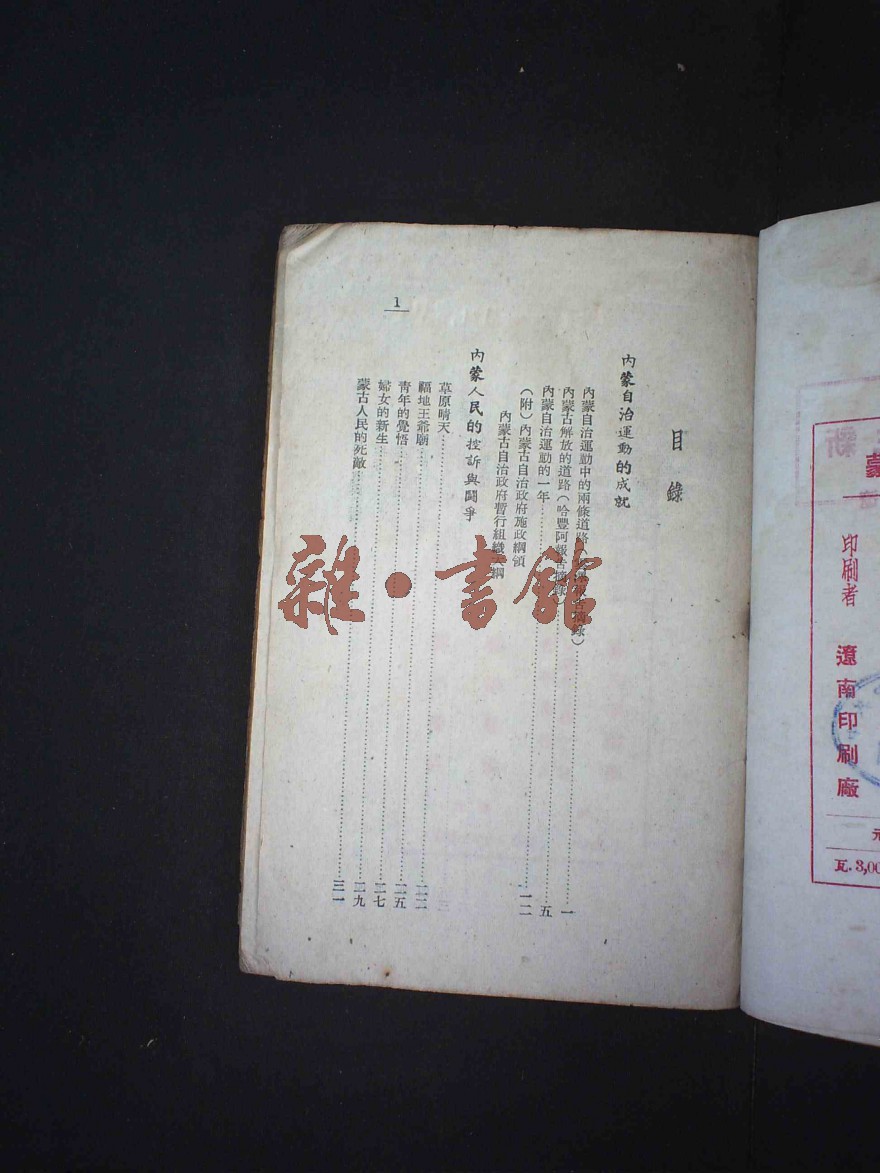 目錄
內蒙自治運動的成就
內蒙自治運動中的兩條道路
報告摘錄）……一
內蒙古解放的道路（哈豐阿報告摘錄）……五
內蒙自治運動的一年……一二
（附）內蒙古自治政府施政綱領
內蒙古自治政府暫行組織大綱
內蒙人民的控訴與鬪爭
草原晴天
福地王爺廟……二二
靑年的覺悟……二五
婦女的新生……二七
蒙古人民的死敵……二九
三一
1
雜·書館
蒙
印刷者 遼南印刷廠
瓦.3,00